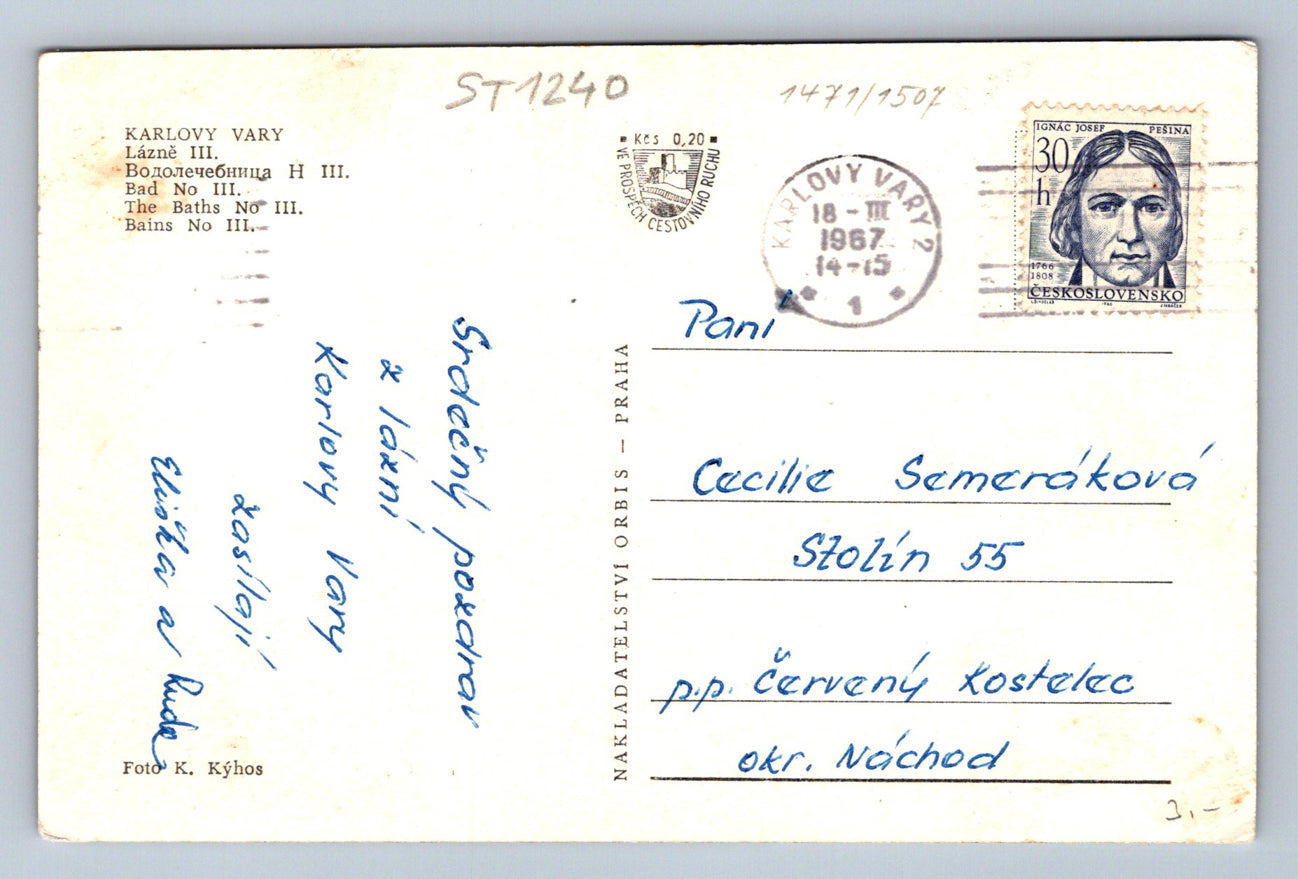 ST1240
1471/1507
KARLOVY VARY
Lázně III.
Водолечебница Н III.
Bad No III.
The Baths No III.
Bains No III.
Kčs 0,20
VE PROSPĚCH CESTOVNÍHO RUCHU
KARLOVY VARY 2
18-III
1967
14-15
1
IGNÁC JOSEF PEŠINA
30
h
1766
1808
ČESKOSLOVENSKO
Srdečný pozdrav
z lázní
Karlovy Vary
zasílají
Eliška a Ruda
Foto K. Kýhos
NAKLADATELSTVÍ ORBIS – PRAHA
Paní
Cecilie Semeráková
Stolín 55
p.p. Červený Kostelec
okr. Náchod
3,-